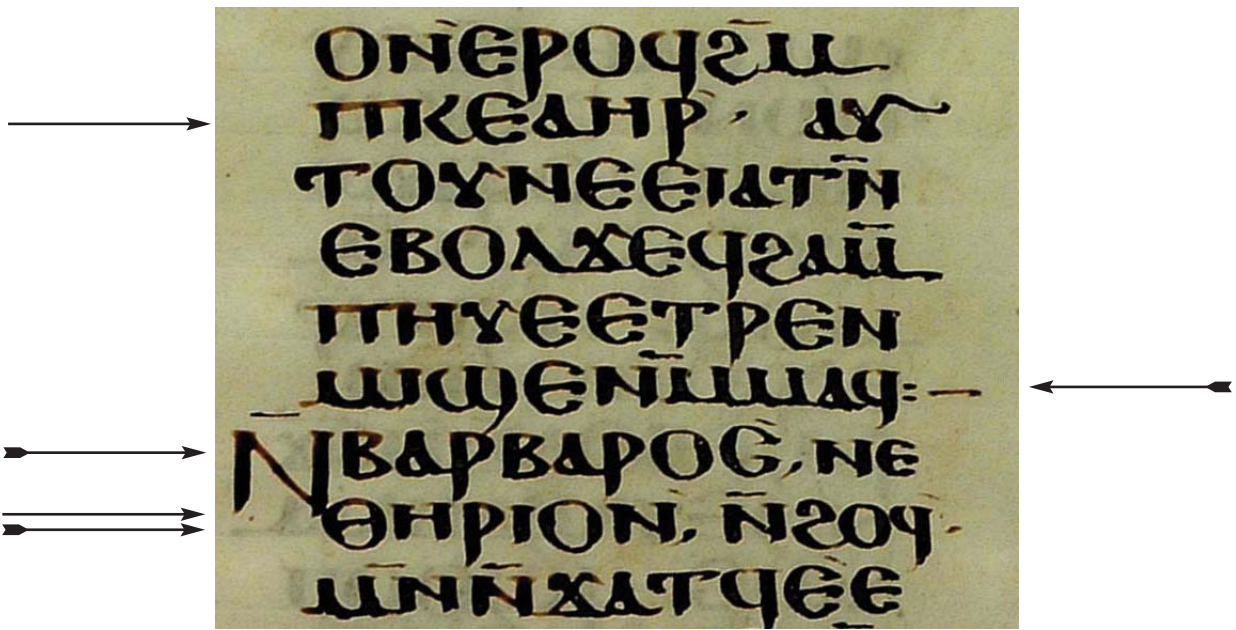 ⲟⲛ̀ⲉⲣⲟϥϩⲙ̅
ⲡⲕⲉⲁⲏⲣ· ⲁⲩ
ⲧⲟⲩⲛⲉⲉⲓⲁⲧⲛ̅
ⲉⲃⲟⲗϫⲉϥϩⲁⲙ̅
ⲡⲏⲩⲉⲉⲧⲣⲉⲛ
ⲙⲓϣⲉⲛⲙ̅ⲙⲁϥ:—
ⲛ̅ⲃⲁⲣⲃⲁⲣⲟⲥ̀, ⲛⲉ
ⲑⲏⲣⲓⲟⲛ̀, ⲛ̅ϩⲟϥ̀·
ⲙⲛ̅ⲛ̅ϫⲁⲧϥⲉ̀ⲉ